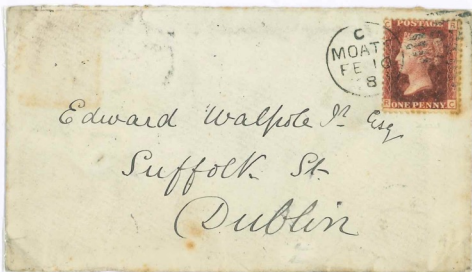 C
MOAT
FE 10
8
POSTAGE
ONE PENNY
C
Edward Walpole Jr Esq
Suffolk St.
Dublin